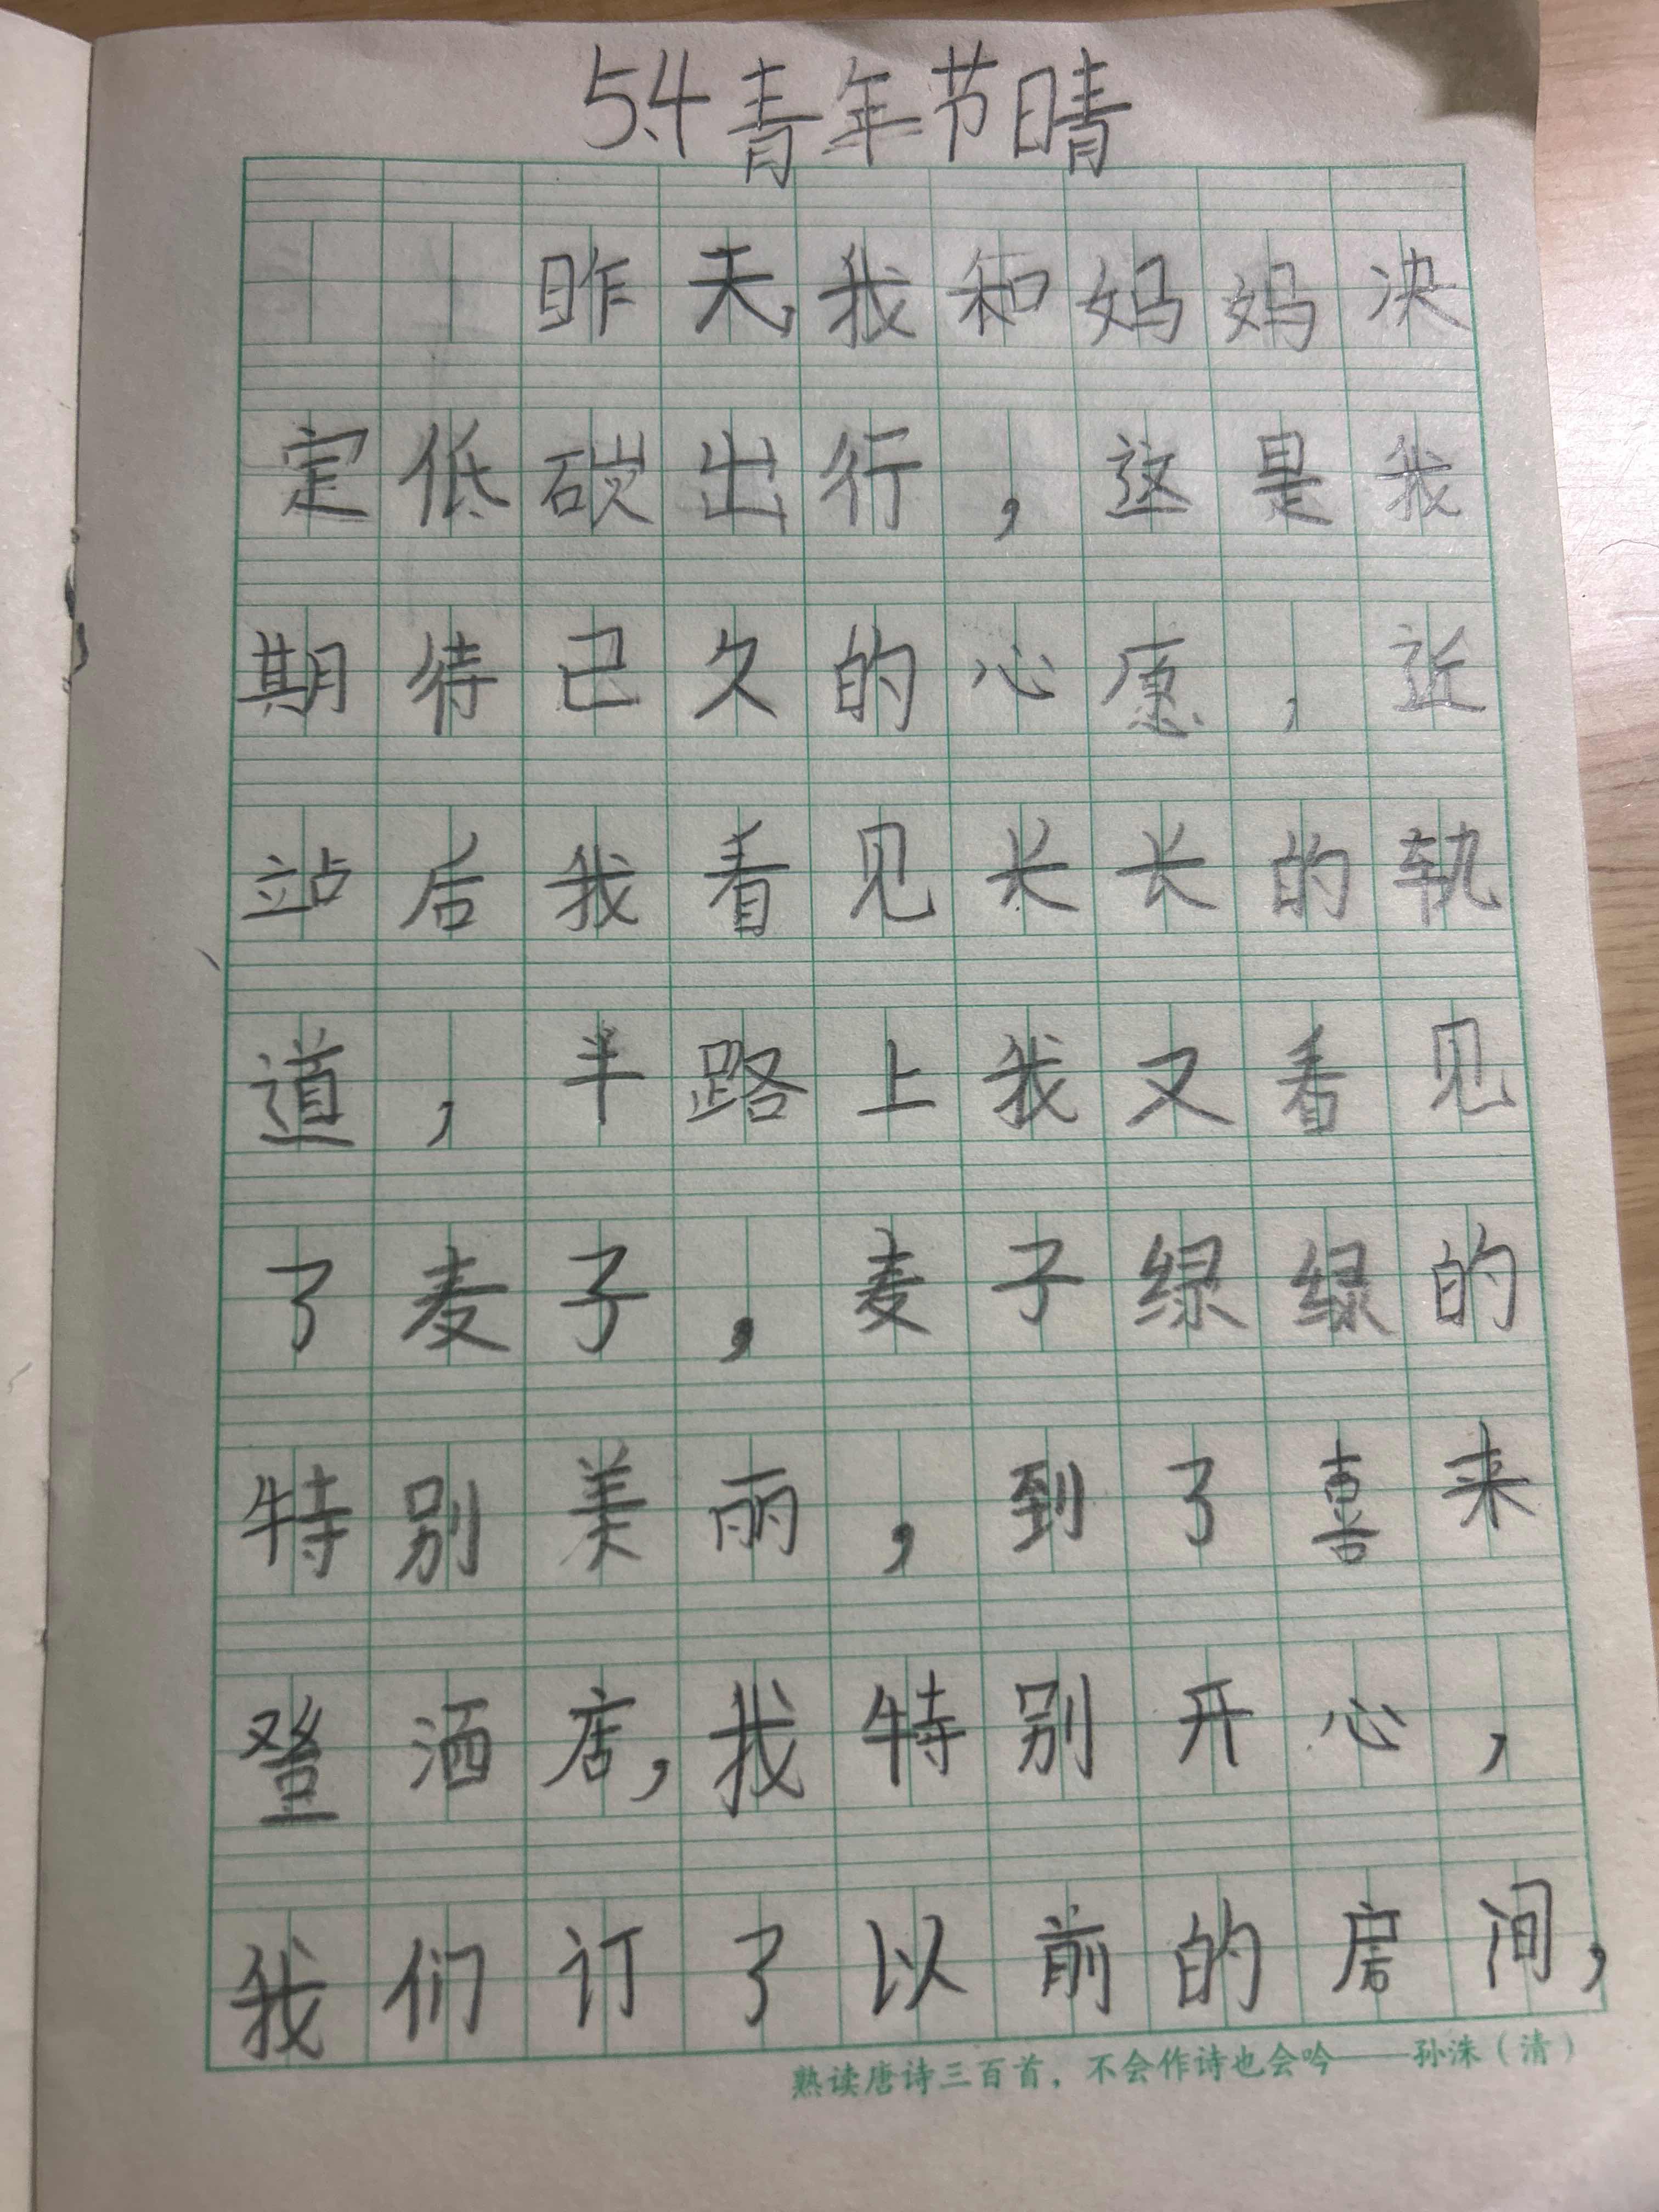 5.4青年节晴
昨天,我和妈妈决
定低碳出行，这是我
期待已久的心愿，近
站后我看见长长的轨
道，半路上我又看见
了麦子，麦子绿绿的
特别美丽，到了喜来
登酒店，我特别开心，
我们订了以前的房间，
熟读唐诗三百首，不会作诗也会吟——孙洙（清）